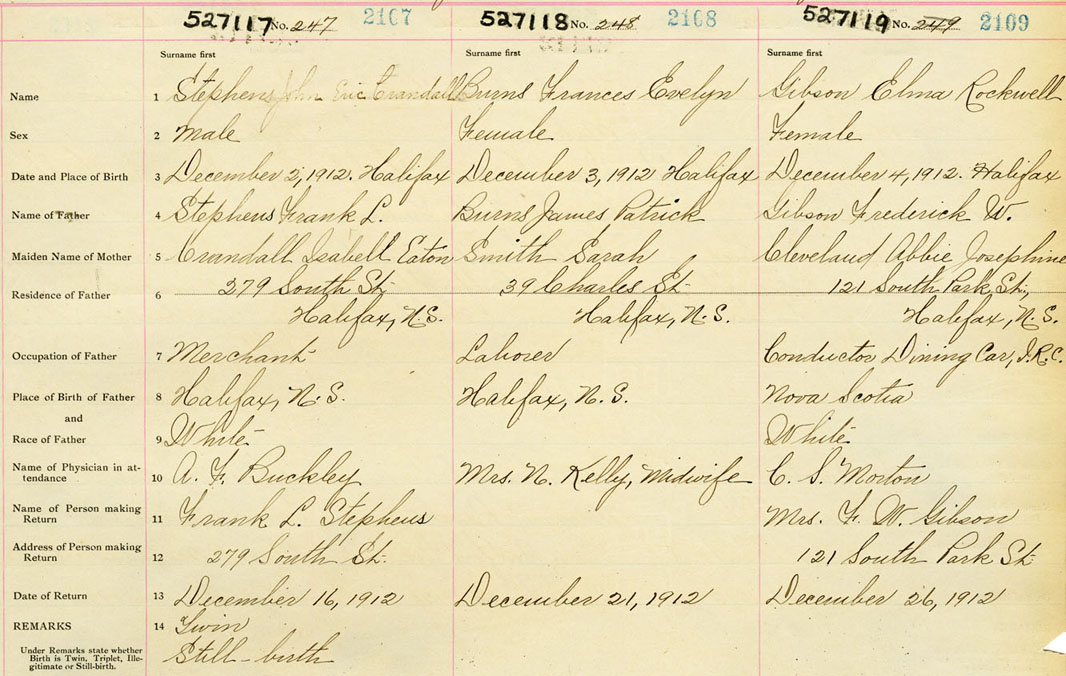 527117 No. 247 2107 527118 No. 248 2108 527119 No. 249 2109
Surname first Surname first Surname first
Name 1 Stephens John Eric Crandall Burns Frances Evelyn Gibson Elma Rockwell
Sex 2 Male Female Female
Date and Place of Birth 3 December 2, 1912. Halifax December 3, 1912 Halifax December 4, 1912. Halifax
Name of Father 4 Stephens Frank L. Burns James Patrick Gibson Frederick W.
Maiden Name of Mother 5 Crandall Isabell Eaton Smith Sarah Cleveland Abbie Josephine
Residence of Father 6 279 South St. 39 Charles St. 121 South Park St.,
Halifax, N.S. Halifax, N.S. Halifax, N.S.
Occupation of Father 7 Merchant Laborer Conductor Dining Car, I.R.C.
Place of Birth of Father 8 Halifax, N.S. Halifax, N.S. Nova Scotia
and
Race of Father 9 White White
Name of Physician in at-
tendance 10 A. F. Buckley Mrs. N. Kelly, Midwife C. S. Morton
Name of Person making
Return 11 Frank L. Stephens Mrs. F. W. Gibson
Address of Person making
Return 12 279 South St. 121 South Park St.
Date of Return 13 December 16, 1912 December 21, 1912 December 26, 1912
REMARKS 14 Twin
Under Remarks state whether
Birth is Twin, Triplet, Ille-
gitimate or Still-birth.
Still-birth